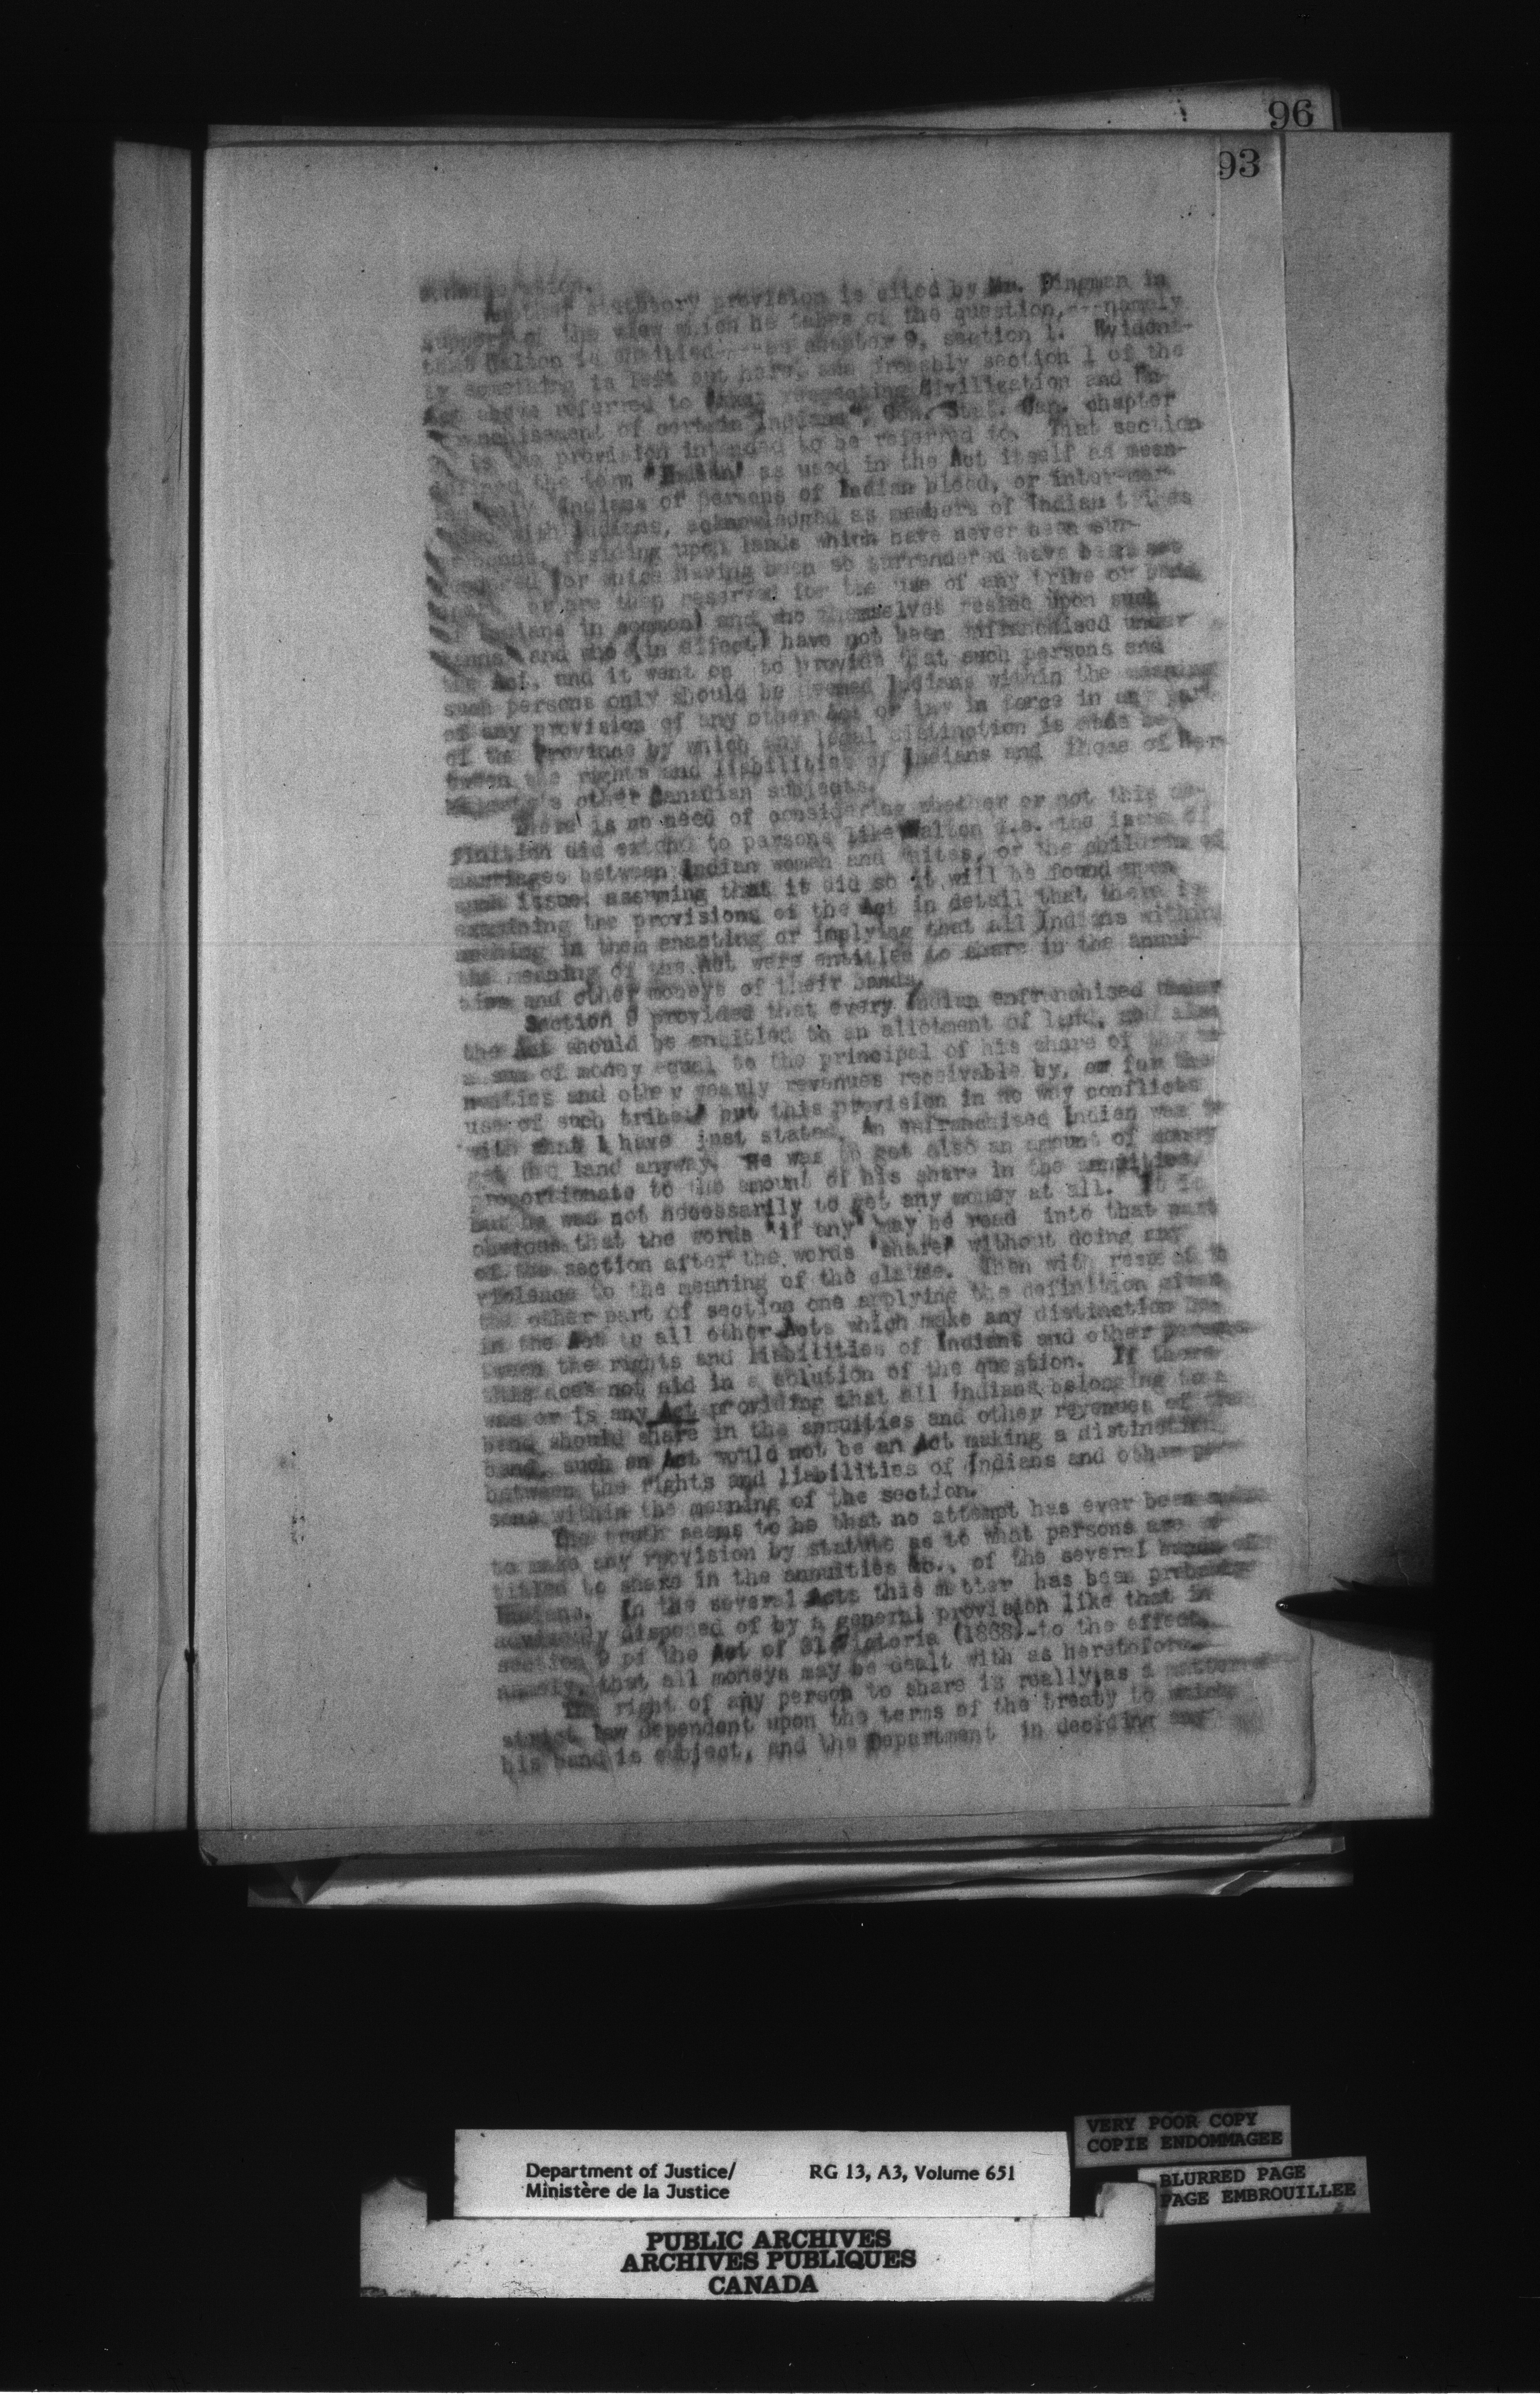 96
93
statutory provision is cited by Mr. Dingman in
support of the view which he takes of the question,---namely
that Walton is entitled----as chapter 9, section 1. Evident-
ly something is left out here, and probably section 1 of the
Act above referred to "Act respecting Civilization and En-
franchisement of certain Indians", Con. Stat. Can. chapter
is the provision intended to be referred to. That section
defined the term "Indian" as used in the Act itself as mean-
only Indians or persons of Indian blood, or inter-mar-
with Indians, acknowledged as members of Indian tribes
residing upon lands which have never been sur-
for which having been so surrendered have been set
or are then reserved for the use of any tribe or band
of Indians in common) and who themselves reside upon such
lands" and who (in effect) have not been enfranchised under
the Act, and it went on to provide that such persons and
such persons only should be deemed Indians within the meaning
of any provision of any other Act or law in force in any part
of the Province by which any legal distinction is made be-
tween the rights and liabilities of Indians and those of Her
Majesty's other Canadian subjects.
There is no need of considering whether or not this de-
finition did extend to persons like Walton i.e. the issue of
marriages between Indian women and whites, or the children of
such issue; assuming that it did so it will be found upon
examining the provisions of the Act in detail that there is
nothing in them enacting or implying that all Indians within
the meaning of the Act were entitled to share in the annui-
ties and other moneys of their bands.
Section 9 provided that every Indian enfranchised under
the Act should be entitled to an allotment of land, and also
a sum of money equal to the principal of his share of the an-
nuities and other yearly revenues receivable by, or for the
use of such tribe" but this provision in no way conflicts
with what I have just stated. An enfranchised Indian was to
get the land anyway. He was to get also an amount of money
proportionate to the amount of his share in the annuities,
but he was not necessarily to get any money at all. It is
obvious that the words "if any" may be read into that part
of the section after the words "share" without doing any
violence to the meaning of the clause. Then with respect to
the other part of section one applying the definition given
in the Act to all other Acts which make any distinction be-
tween the rights and liabilities of Indians and other persons
this does not aid in a solution of the question. If there
was or is any Act providing that all Indians belonging to a
band should share in the annuities and other revenues of the
band, such an Act would not be an Act making a distinction
between the rights and liabilities of Indians and other per-
sons within the meaning of the section.
The truth seems to be that no attempt has ever been made
to make any provision by statute as to what persons are en-
titled to share in the annuities &c., of the several bands of
Indians. In the several Acts this matter has been probably
advisedly disposed of by a general provision like that in
section 9 of the Act of 31 Victoria (1868)-to the effect,
namely, that all moneys may be dealt with as heretofore.
The right of any person to share is really, as a matter of
strict law dependent upon the terms of the treaty to which
his band is subject, and the Department in deciding any
VERY POOR COPY
COPIE ENDOMMAGEE
BLURRED PAGE
PAGE EMBROUILLEE
Department of Justice/ RG 13, A3, Volume 651
Ministère de la Justice
PUBLIC ARCHIVES
ARCHIVES PUBLIQUES
CANADA